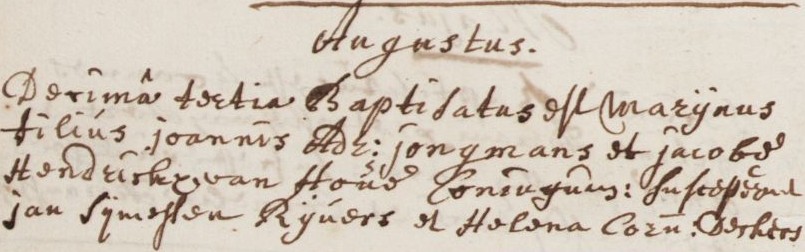 Augustus.
Decimâ tertia Baptisatus est Marijnus
filius joannis Adr: jongmans et jacobæ
Hendrickx van Hove Coniugum: susceperunt
jan Sijmessen Rijvers et Helena Corn: Deckers